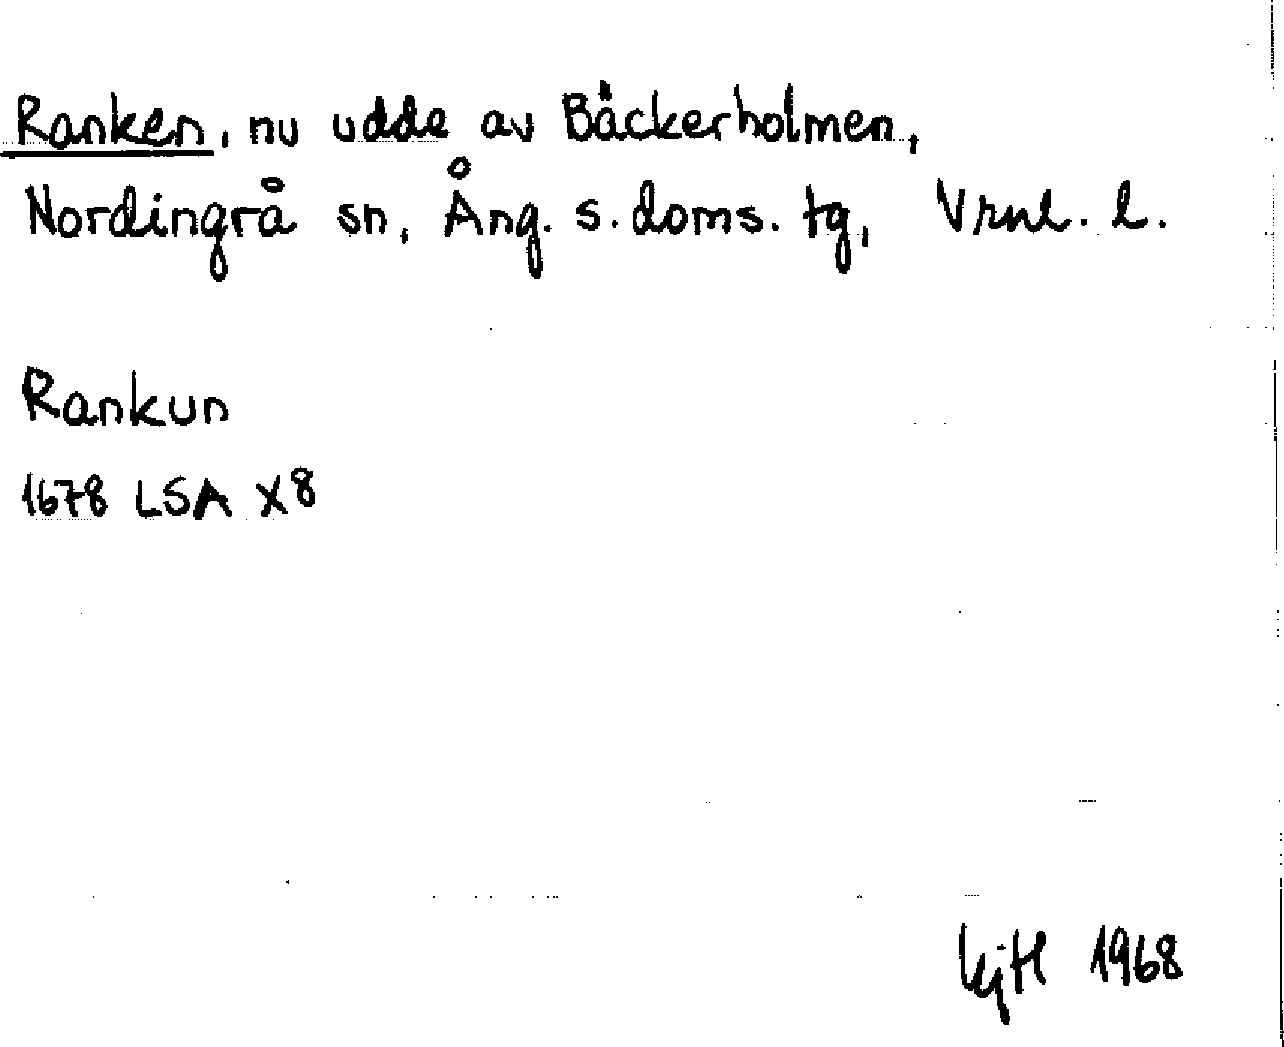 Ranken, nu udde av Bäckerholmen,
Nordingrå sn, Ång. s. doms. tg, Vrnl. l.
Rankun
1678 LSA X8
1968